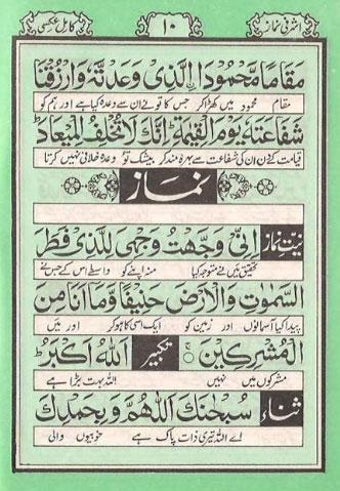 اشرفی نماز ۱۰ کامل عکسی
مَقَامًا مَّحْمُودَا ۨ الَّذِیْ وَعَدتَّهٗ وَارْزُقْنَا
مقام محمود میں کھڑا کر جس کا تو نے ان سے وعدہ کیا ہے اور ہم کو
شَفَاعَتَهٗ یَوْمَ الْقِیٰمَةِ ۚ اِنَّكَ لَا تُخْلِفُ الْمِیْعَادَ
قیامت کے دن ان کی شفاعت سے بہرہ مند کر بیشک تو وعدہ خلافی نہیں کرتا
نماز
نیت نماز اِنِّیْ وَجَّهْتُ وَجْهِیَ لِلَّذِیْ فَطَرَ
تحقیق میں نے متوجہ کیا منہ اپنے کو واسطے اس کے جس نے
السَّمٰوٰتِ وَالْاَرْضَ حَنِیْفًا وَّمَآ اَنَا مِنَ
پیدا کیا آسمانوں اور زمین کو ایک اسی کا ہو کر اور میں
الْمُشْرِكِیْنَ تکبیر اَللّٰهُ اَكْبَرُ
مشرکوں میں نہیں اللہ بہت بڑا ہے
ثناء سُبْحٰنَكَ اللّٰهُمَّ وَبِحَمْدِكَ
اے اللہ تیری ذات پاک ہے خوبیوں والی